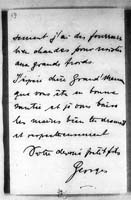 sement j'ai des fourrures
bien chaudes pour résister
aux grands froids.
J'espère chère Grand'Maman
que vous êtes en bonne
santé et je vous baise
les mains bien tendrement
et respectueusement
Votre dévoué petit fils
Georges